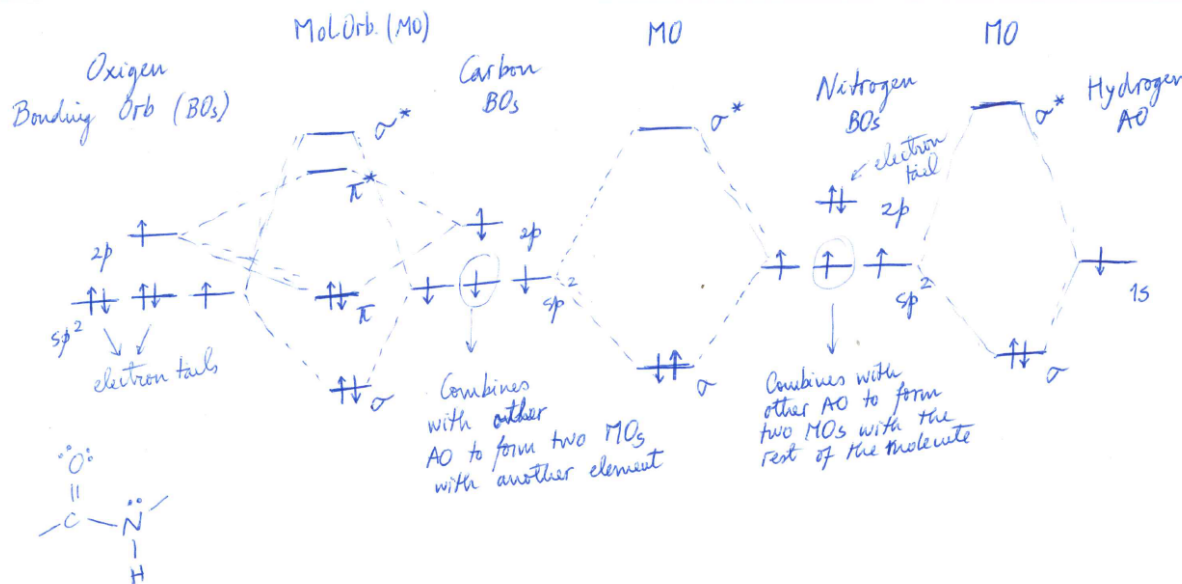 Mol.Orb. (MO)
MO
MO
Oxigen
Bonding Orb (BOs)
Carbon
BOs
Nitrogen
BOs
Hydrogen
AO
σ*
σ*
σ*
electron
tail
π*
2p
2p
2p
sp²
π
sp²
sp²
1s
electron tails
σ
σ
σ
Combines
with other
AO to form two MOs
with another element
Combines with
other AO to form
two MOs with the
rest of the molecule
O
C
N
H